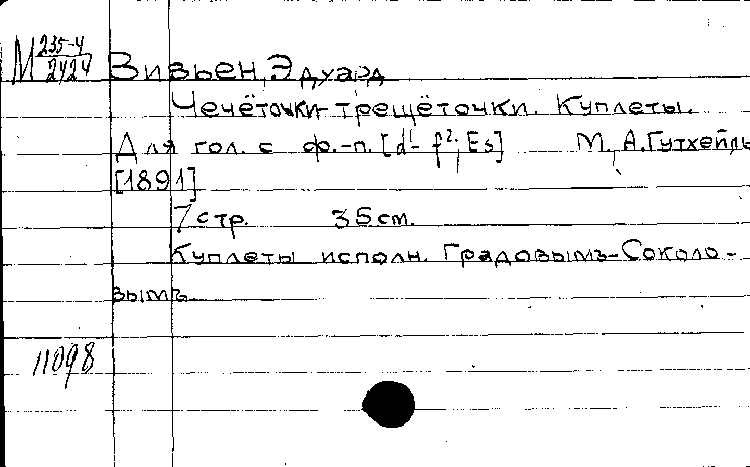 М 235-4
2424
Вивьен, Эдуард
Чечёточки-трещёточки. Куплеты.
Для гол. с ф.-п. [d¹- f²; Es] М., А. Гутхейль
[1891]
7 стр. 35 см.
Куплеты исполн. Градовымъ-Соколо-
вымъ
11098